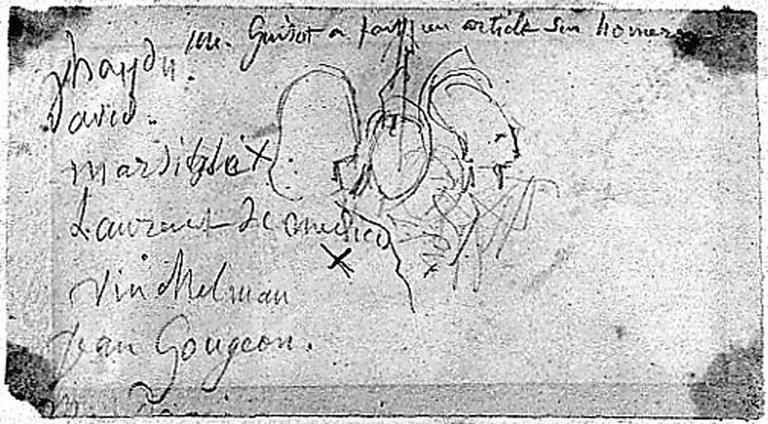 m. Guisot a fait un article sur homere
haydn.
David.
Laurent de medici
Vinckelman
Jean Gougeon.